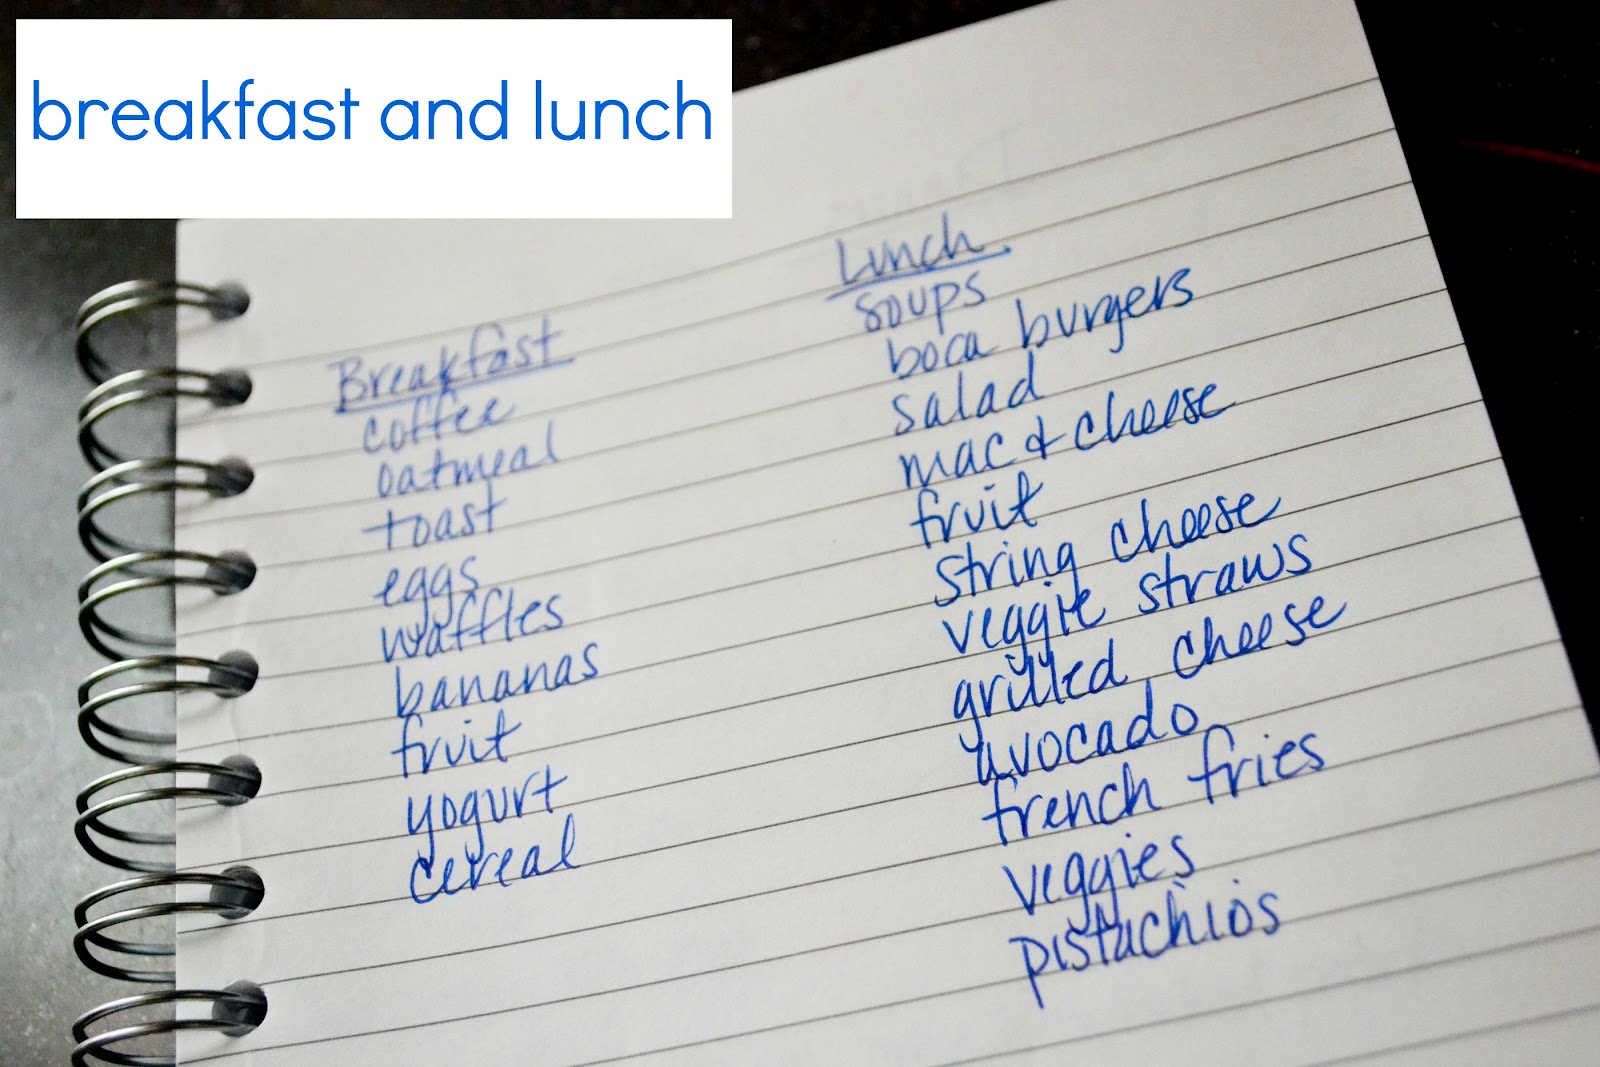 breakfast and lunch
Breakfast
coffee
oatmeal
toast
eggs
waffles
bananas
fruit
yogurt
cereal
Lunch
soups
boca burgers
salad
mac & cheese
fruit
string cheese
veggie straws
grilled cheese
avocado
french fries
veggies
pistachios